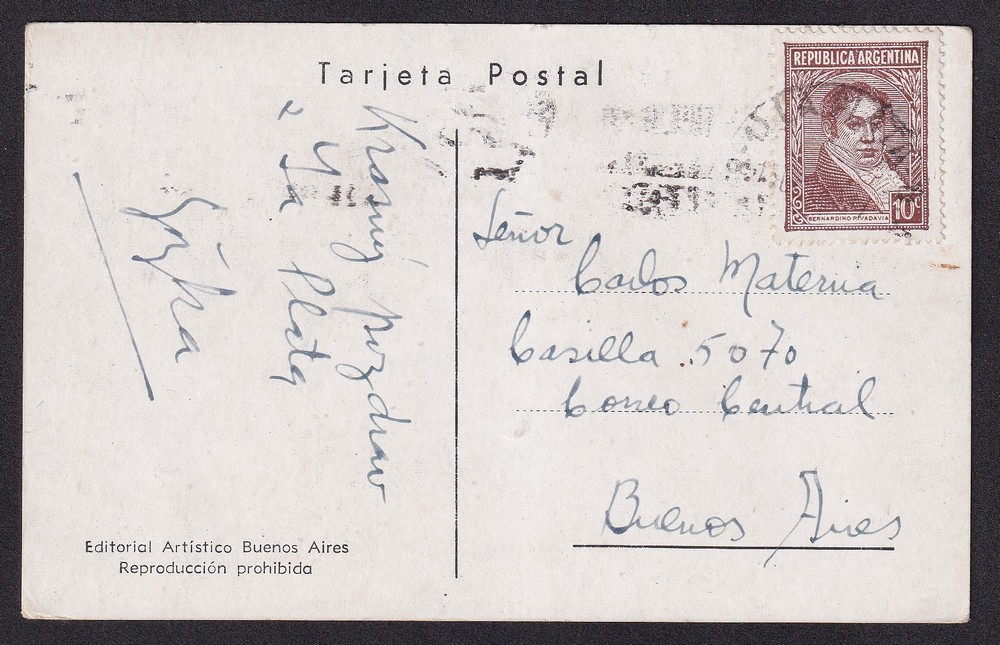 Tarjeta Postal
REPUBLICA ARGENTINA
BERNARDINO RIVADAVIA
10c
Krásný pozdrav
z La Plata
Señor
Carlos Materna
Casilla 5070
Correo Central
Buenos Aires
Editorial Artístico Buenos Aires
Reproducción prohibida